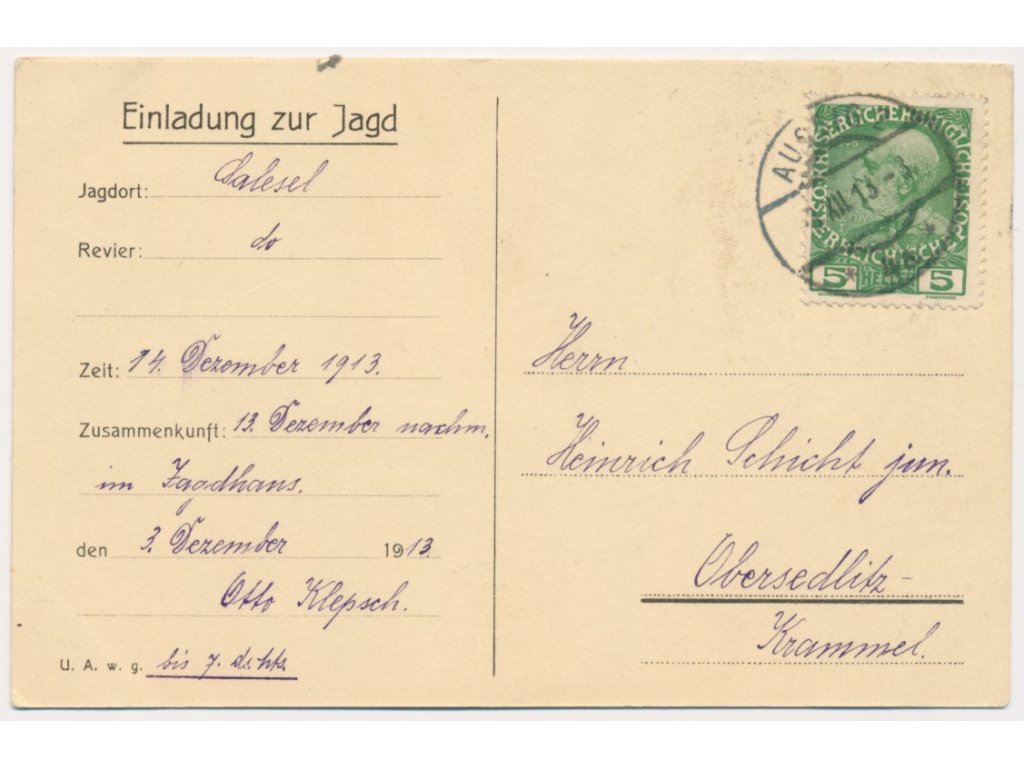 Einladung zur Jagd
Jagdort: Salesel
Revier: do
Zeit: 14. Dezember 1913.
Zusammenkunft: 13. Dezember nachm.
im Jagdhaus.
den 3. Dezember 1913
Otto Klepsch.
U. A. w. g. bis 7. ds. Mts.
Herrn
Heinrich Schicht jun.
Obersedlitz-
Krammel.
AUS
XII 13 - 3
KAISERLICHE KÖNIGLICHE
ÖSTERREICHISCHE POST
5 HELLER 5